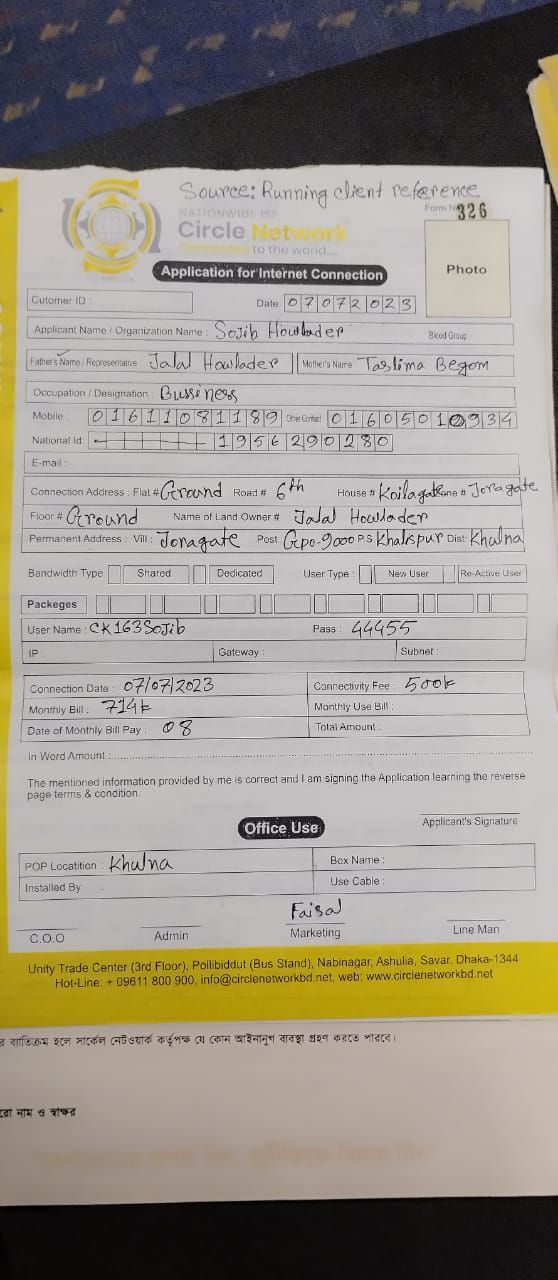 Source: Running client reference
NATIONWIDE ISP
Form No 326
Circle Network
Connected to the world...
Application for Internet Connection
Photo
Cutomer ID :
Date 07072023
Applicant Name / Organization Name : Sojib Howlader Blood Group
Father's Name / Representative Jalal Howlader Mother's Name Taslima Begom
Occupation / Designation : Bussiness
Mobile : 01611081189 Other Contact 01605010934
National Id: 1956290280
E-mail :
Connection Address : Flat # Ground Road # 6th House # Zone # Joragate
Floor # Ground Name of Land Owner # Jalal Howlader
Permanent Address : Vill : Joragate Post Gpo-9000 P.S Khalispur Dist: Khulna
Bandwidth Type Shared Dedicated User Type : New User Re-Active User
Packeges
User Name : CK163Sojib Pass : 44455
IP : Gateway : Subnet :
Connection Date : 07/07/2023 Connectivity Fee : 500৳
Monthly Bill : 714৳ Monthly Use Bill :
Date of Monthly Bill Pay : 08 Total Amount :
In Word Amount :
The mentioned information provided by me is correct and I am signing the Application learning the reverse
page terms & condition.
Applicant's Signature
Office Use
POP Locatition : Khulna Box Name :
Installed By Use Cable :
Faisal
C.O.O Admin Marketing Line Man
Unity Trade Center (3rd Floor), Pollibiddut (Bus Stand), Nabinagar, Ashulia, Savar, Dhaka-1344
Hot-Line: + 09611 800 900, info@circlenetworkbd.net, web: www.circlenetworkbd.net
ব্যতিক্রম হলে সার্কেল নেটওয়ার্ক কর্তৃপক্ষ যে কোন আইনানুগ ব্যবস্থা গ্রহণ করতে পারবে।
নাম ও স্বাক্ষর